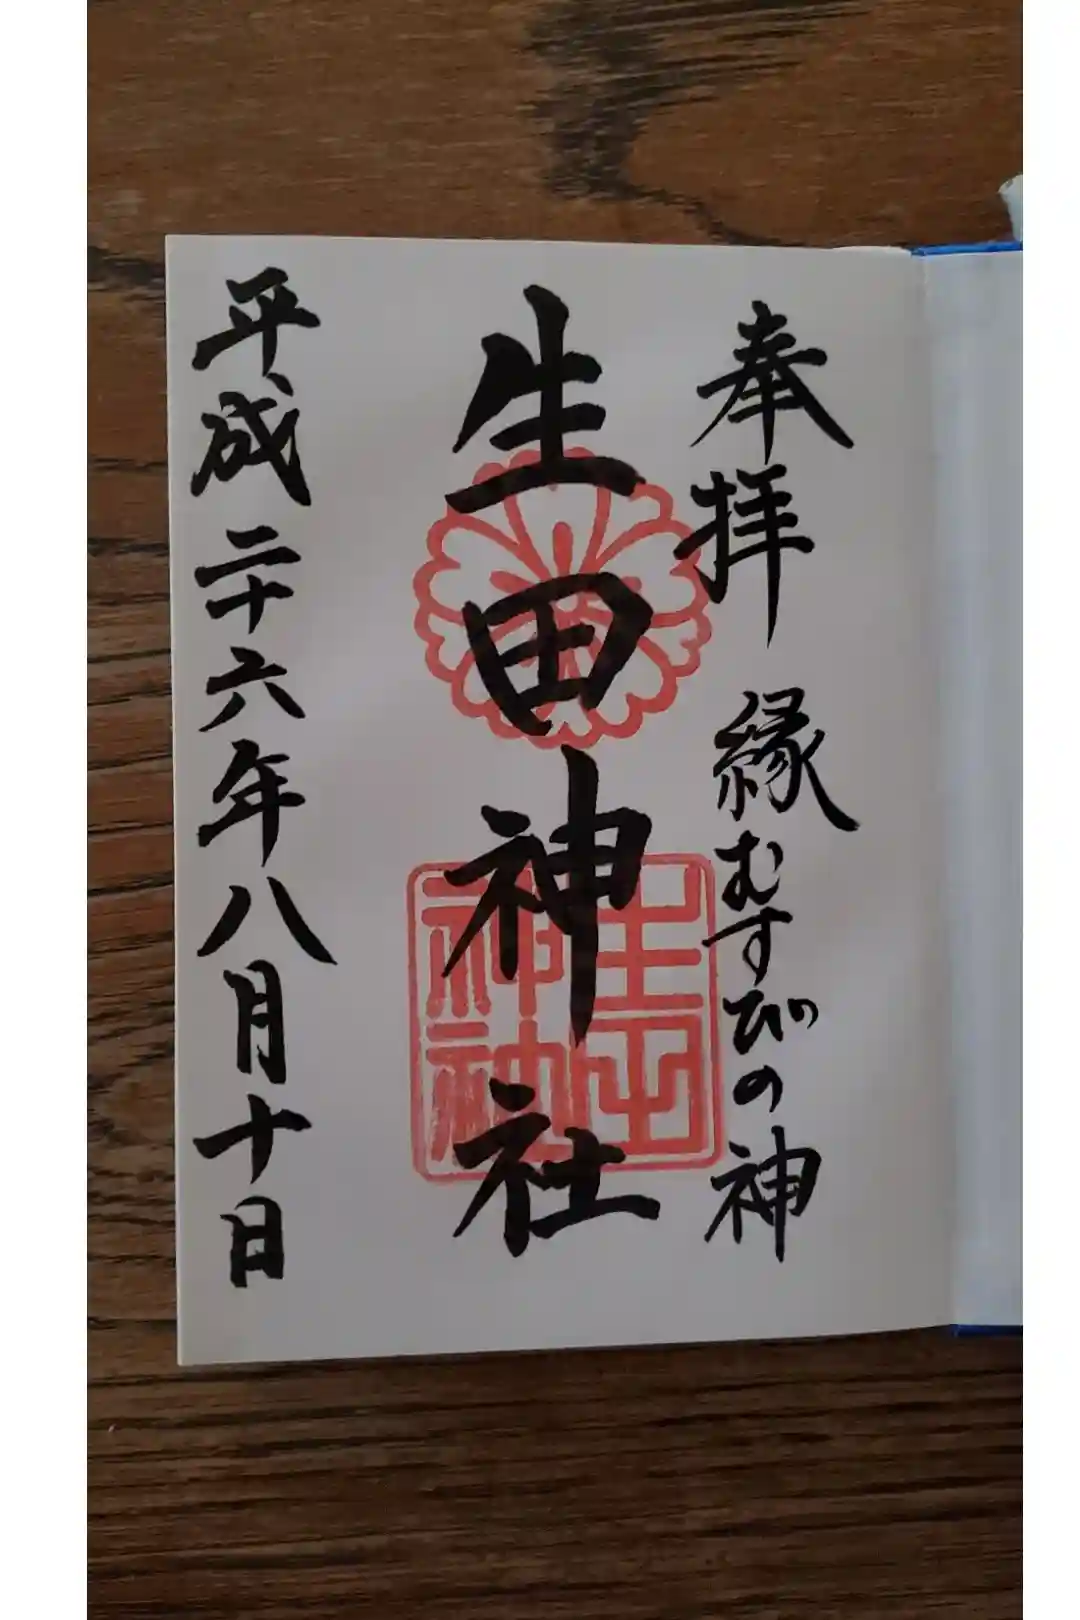 奉拝 縁むすびの神
生田神社
生田神社
平成二十六年八月十日